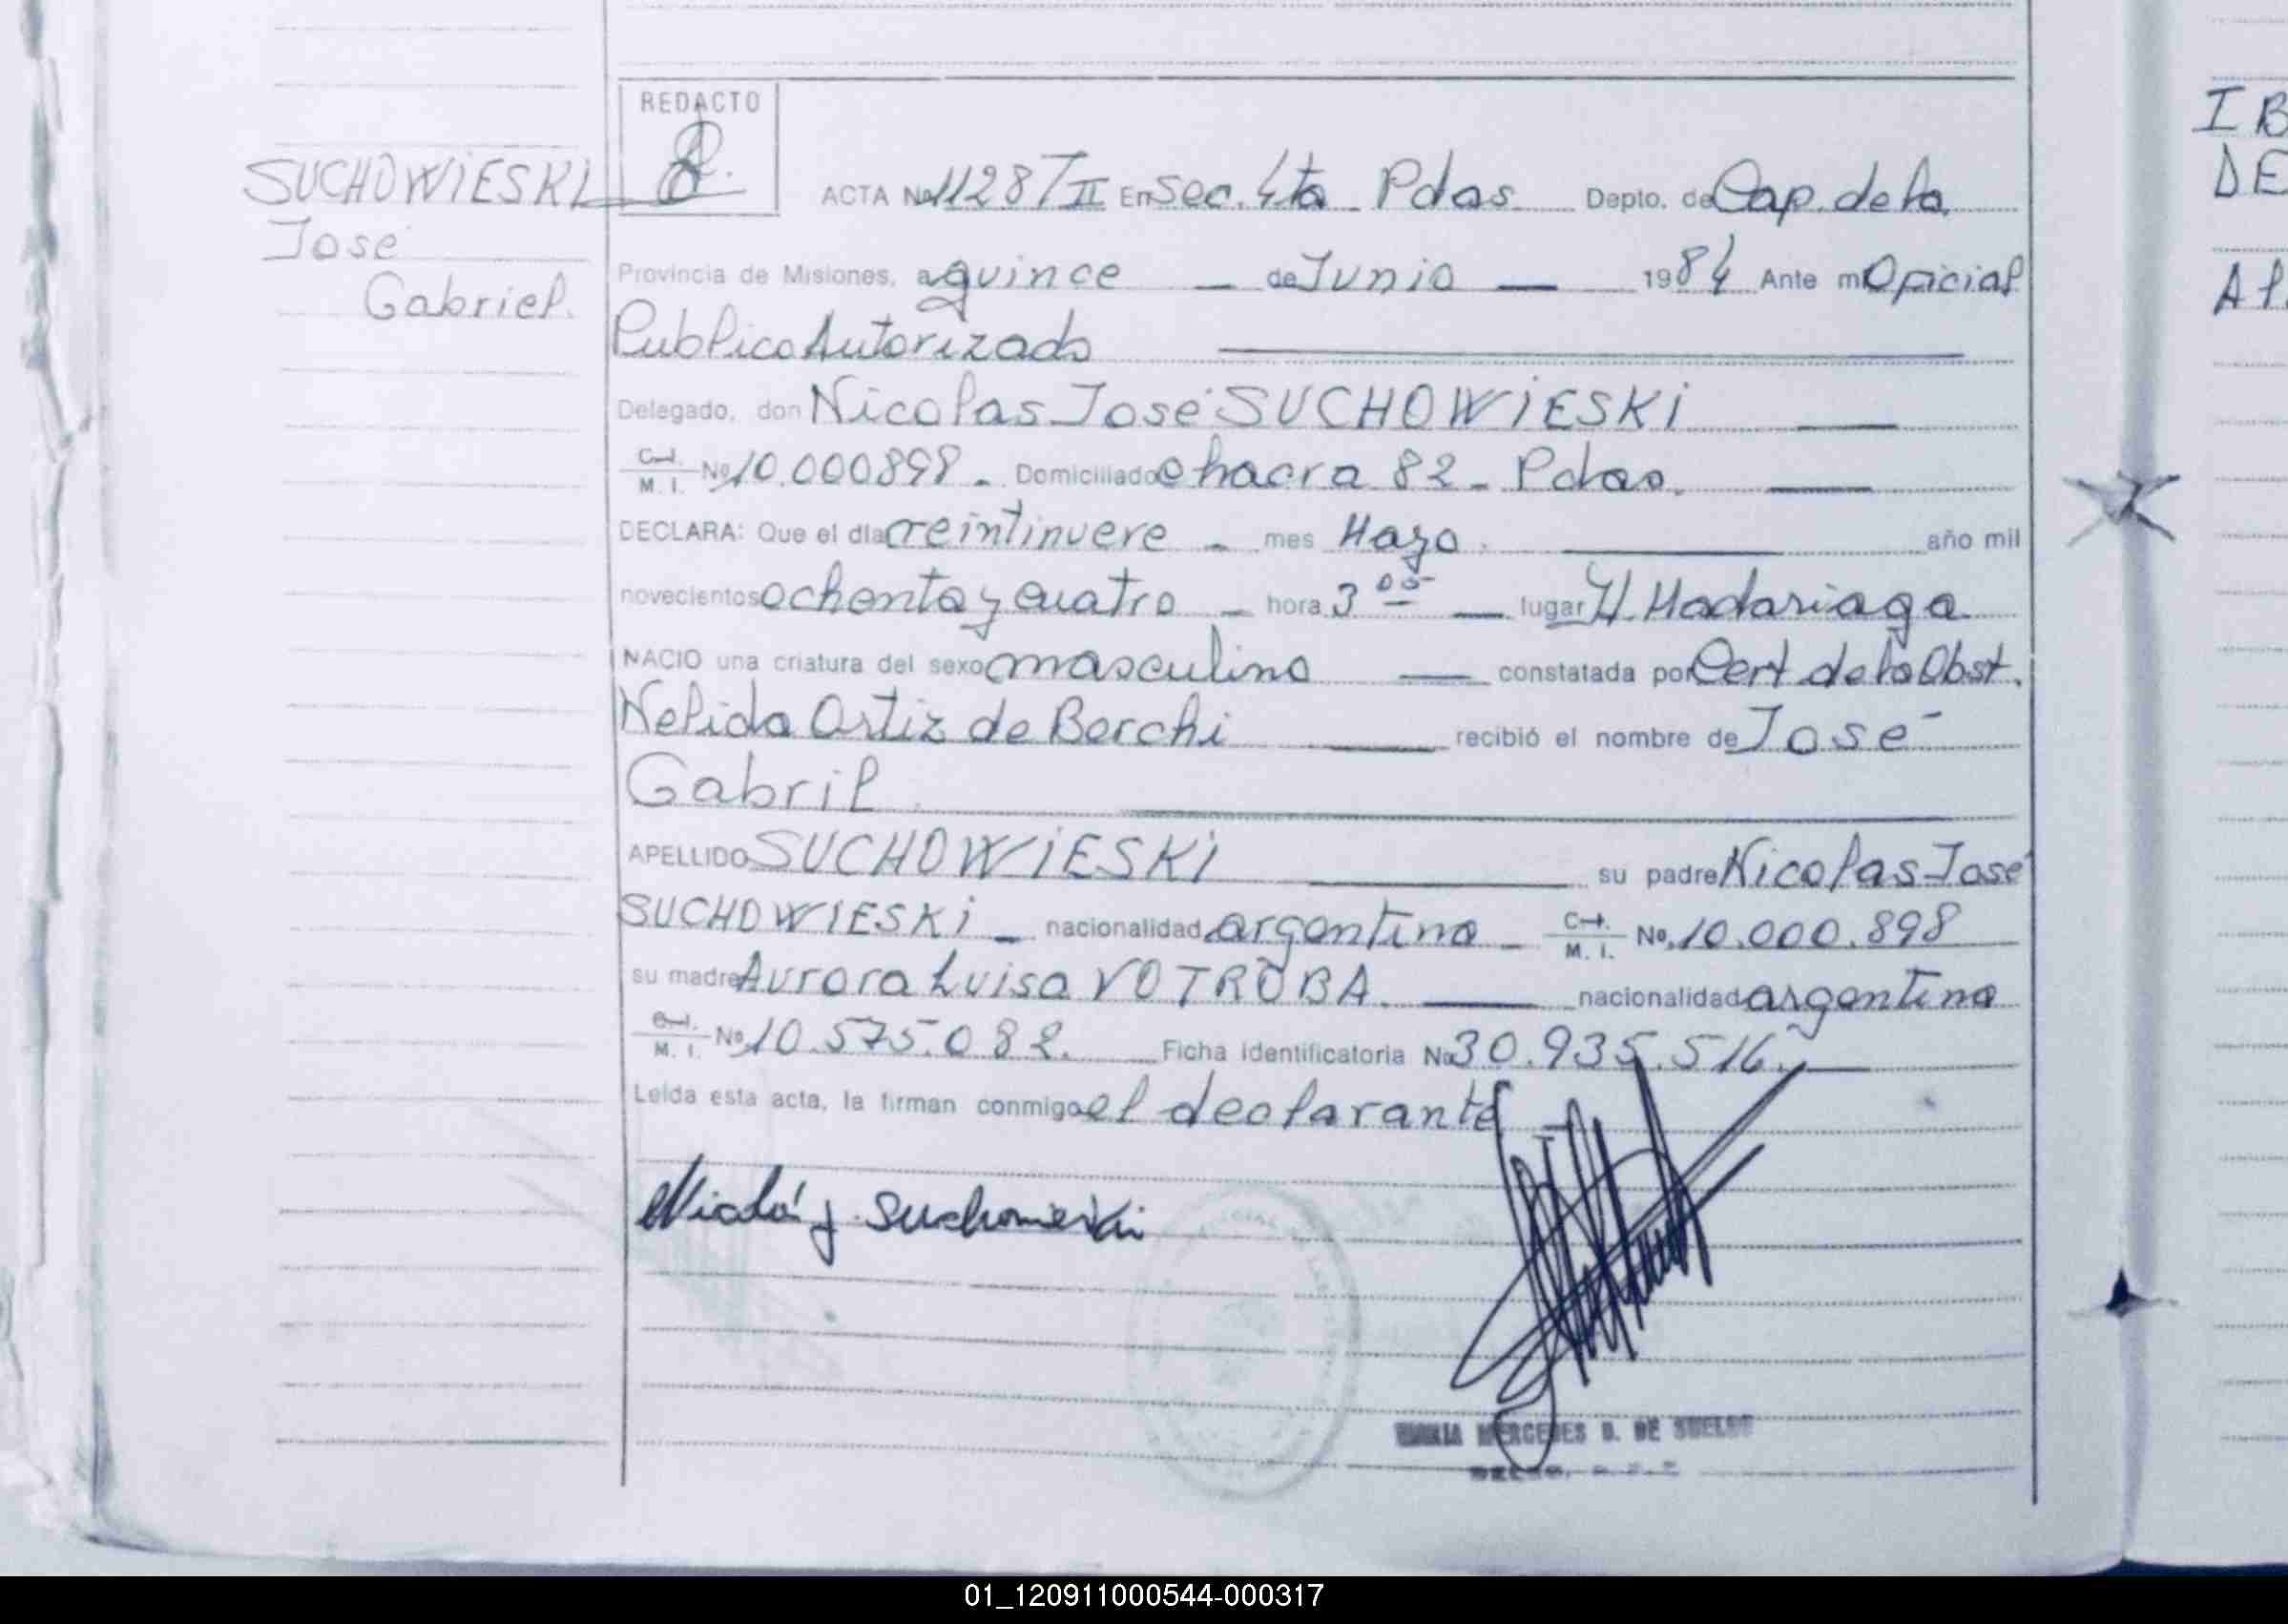 REDACTO
SUCHOWIESKI
José
Gabriel.
ACTA No 1128/II En Sec. 4ta Pdas Depto. de Cap. de la
Provincia de Misiones, a quince de Junio 1984 Ante mi Oficial
Publico Autorizado
Delegado, don Nicolas José SUCHOWIESKI
C.I. M. I. No 10.000898 Domiciliado chacra 82 - Pdas.
DECLARA: Que el día veintinueve mes Mayo año mil
novecientos ochenta y cuatro hora 3 05 lugar H. Madariaga
NACIO una criatura del sexo masculino constatada por Cert de la Obst.
Nelida Ortiz de Berchi recibió el nombre de José
Gabril
APELLIDO SUCHOWIESKI su padre Nicolas José
SUCHOWIESKI nacionalidad argentina C.I. M. I. No. 10.000.898
su madre Aurora Luisa VOTROBA. nacionalidad argentina
C.I. M. I. No 10.575.082. Ficha Identificatoria No 30.935.516.
Leída esta acta, la firman conmigo el declarante
Nicolás J. Suchowieski
MARIA MERCEDES D. DE
I B
DE
Al
01_120911000544-000317